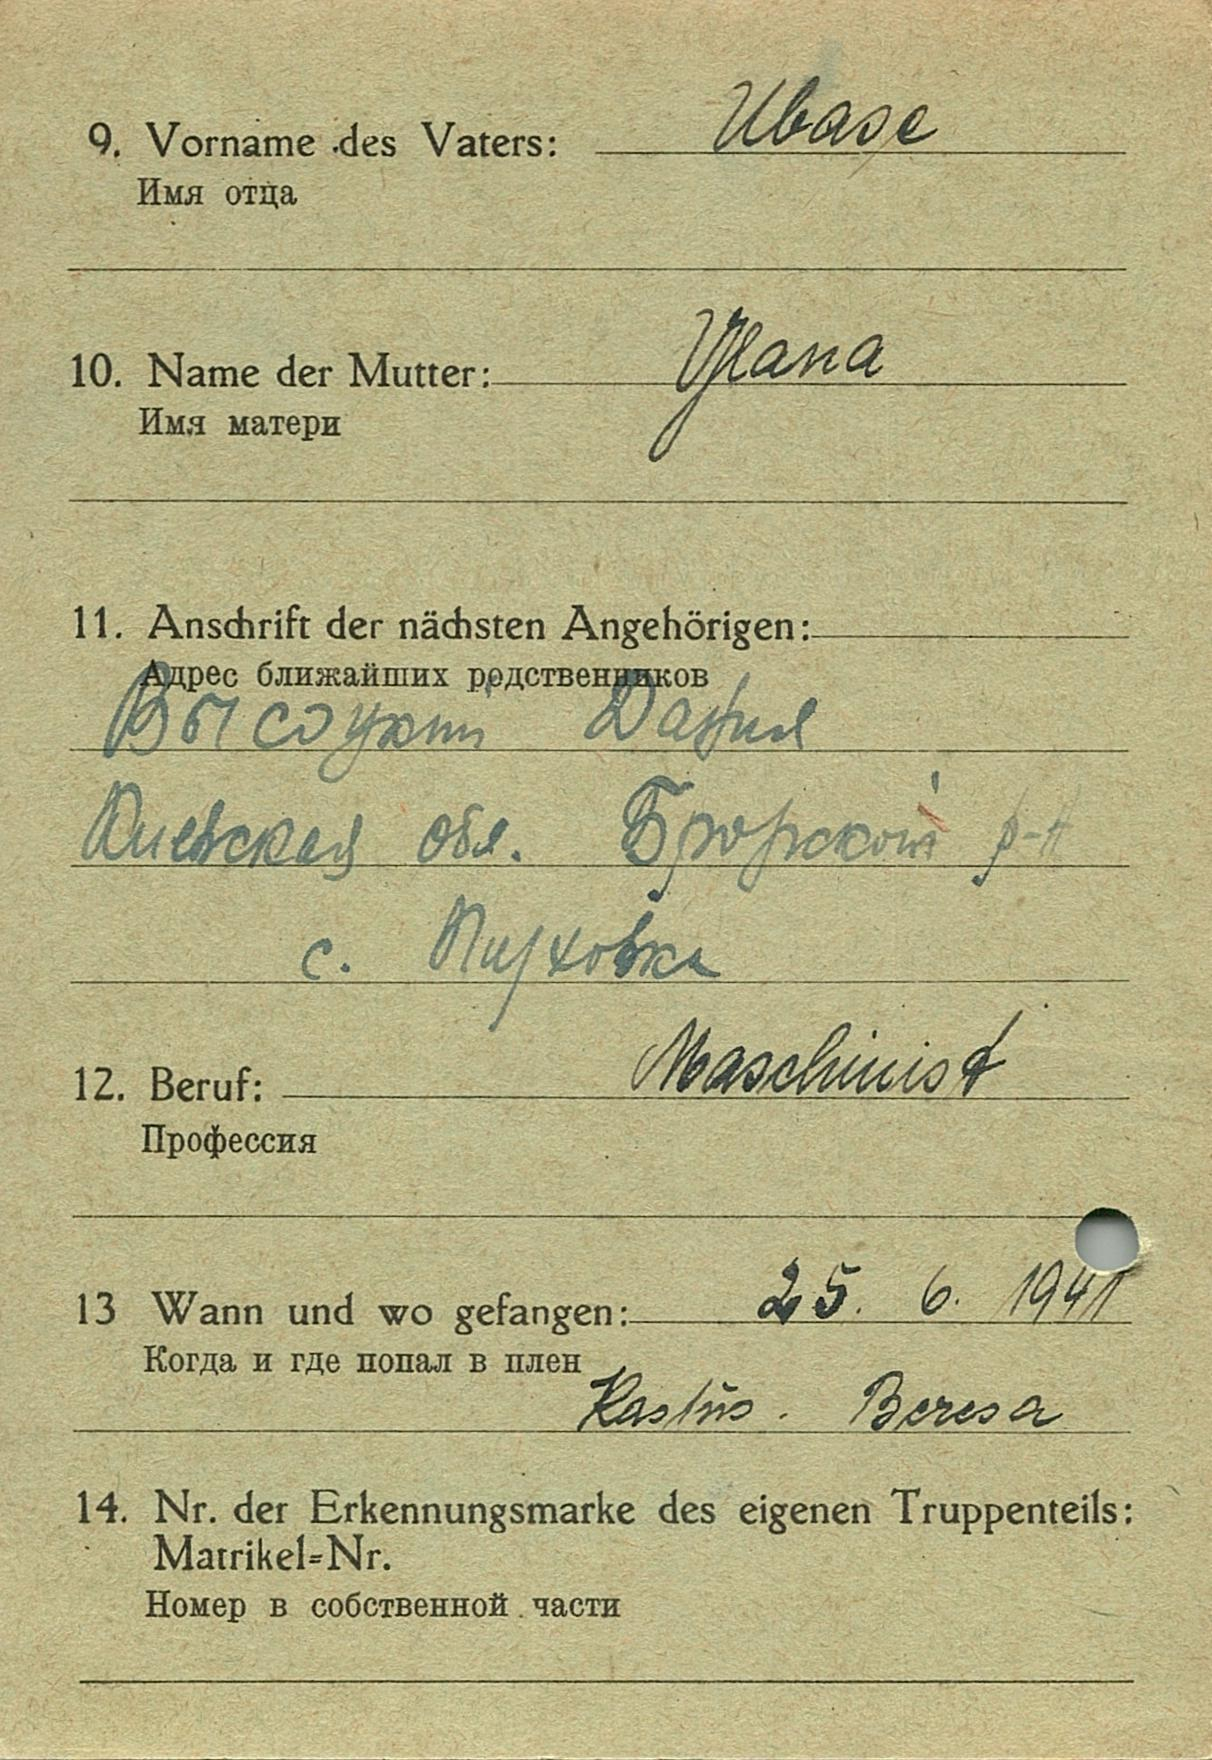 9. Vorname des Vaters: Ubase
Имя отца
10. Name der Mutter: Ульана
Имя матери
11. Anschrift der nächsten Angehörigen:
Адрес ближайших родственников
Высоцкий
Киевская обл. р-н
с. Пуховка
12. Beruf: Maschinist
Профессия
13 Wann und wo gefangen: 25. 6. 1941
Когда и где попал в плен
Beresa
14. Nr. der Erkennungsmarke des eigenen Truppenteils:
Matrikel=Nr.
Номер в собственной части